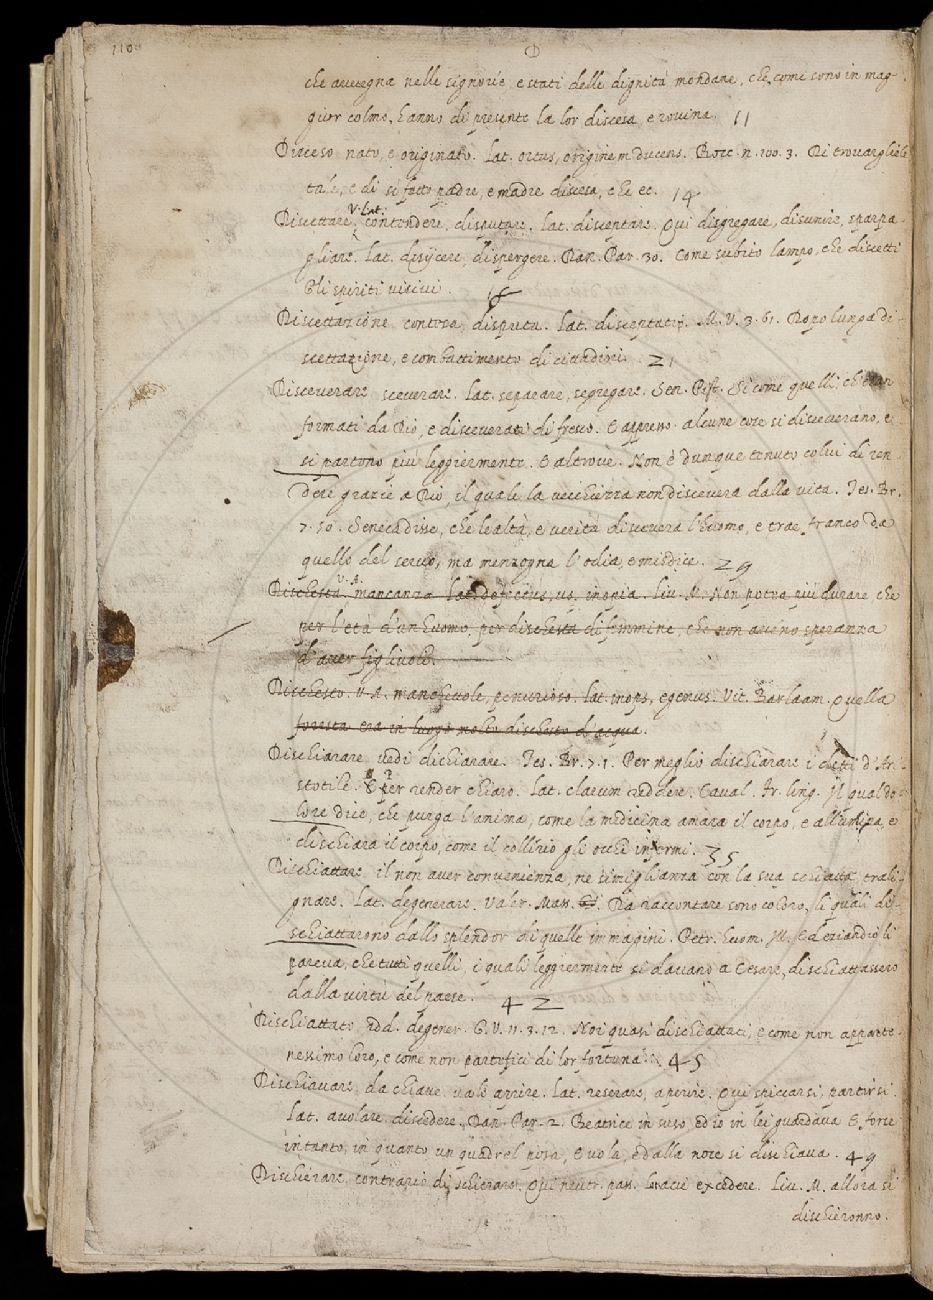 che avvegna nelle signorie, e stati delle dignità mondane, che come sono in mag-
gior colmo, hanno di presente la lor discesa, e rovina. 11
Disceso nato, e originato. Lat. ortus, originem ducens. Bocc. n. 100. 3. Di trovargliele
tale, e di si fatto padre, e madre discesa, che ec. 14
V. Lat.
Discettare, contendere, disputare. Lat. disceptare. Qui disgregare, disunire, sparpa-
gliare. Lat. disijcere, dispergere. Dan. Par. 30. Come subito lampo, che discetti
Gli spiriti visivi.
Discettazione contesa, disputa. Lat. disceptatio. M. V. 3. 61. Dopo lunga di-
scettazione, e combattimento di cittadini. 21
Disceverare sceverare. Lat. separare, segregare. Sen. Pist. Si come quelli, ch'eran
formati da Dio, e disceverati di fresco. E appresso. alcune cose si disceverano, e
si partono più leggiermente. E altrove. Non è dunque tenuto colui di ren-
dere grazie a Dio il quale la vecchiezza non discevera dalla vita. Tes. Br.
7. 50. Seneca disse, che lealtà, e verità discevera l'huomo, e trae franco da
quello del servo, ma menzogna l'odia, e misdice. 29
V. A.
Dischesta. mancanza Lat. defectus, us, inopia. Liv. M. Non potea più durare, che
per l'età d'un huomo, per dischesta di femmine, che non avieno speranza
d'aver figliuoli.
Dischesto. V. A. manchevole, penurioso. Lat. inops, egenus. Vit. Barlaam. Quella
foresta era in luogo molto dischesto d'acqua.
Dischiarare vedi dichiarare. Tes. Br. 7. 1. Per meglio dischiarare i detti d'Ari-
stotile. E per render chiaro. Lat. clarum reddere. Caval. Fr. ling. Il qual do-
lore dice, che purga l'anima, come la medicina amara il corpo, e allumina, e
dischiara il corpo, come il collirio gli occhi infermi. 35
Dischiattare il non aver convenienza, ne simiglianza con la sua schiatta, trali-
gnare. Lat. degenerare. Valer. Mass. Da raccontare sono coloro, li quali di-
schiattarono dallo splendor di quelle immagini. Petr. huom. ill. Ed eziandio li
pareva, che tutti quelli, i quali leggiermente si davano a Cesare, dischiattassero
dalla virtù del paese. 42
Dischiattato, add. degener. G. V. 11. 3. 12. Noi quasi dischiattati, e come non apparte-
nessimo loro, e come non partefici di lor fortuna. 45
Dischiavare, da chiave vale aprire. Lat. reserare, aperire. Qui spiccarsi, partirsi.
Lat. avolare discedere. Dan. Par. 2. Beatrice in suso ed io in lei guardava E forse
in tanto, in quanto un quadrel posa, E vola, e dalla noce si dischiava. 49
Dischierare, contrario di schierare. Qui neutr. pass. Lat. acie excedere. Liv. M. allora si
dischieronno.